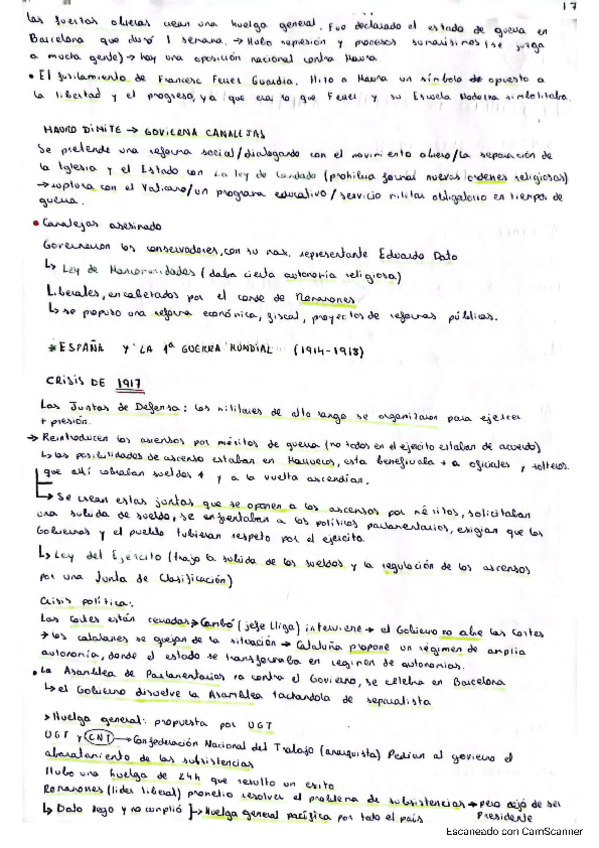 17
las fuerzas obreras crean una huelga general. Fue declarado el estado de guerra en
Barcelona que duró 1 semana. → Hubo represión y procesos sumarísimos (se juzga
a mucha gente) → hay una oposición nacional contra Maura.
• El fusilamiento de Francesc Ferrer Guardia. Hizo a Maura un símbolo de opuesto a
la libertad y el progreso, ya que era lo que Ferrer y su Escuela Moderna simbolizaba.
MAURO DIMITE → GOVIERNA CANALEJAS
Se pretende una reforma social/dialogando con el movimiento obrero/la separación de
la Iglesia y el Estado con la ley de Candado (prohibía formar nuevas ordenes religiosas)
→ ruptura con el Vaticano/un programa educativo/servicio militar obligatorio en tiempos de
guerra.
• Canalejas asesinado
Governaron los conservadores, con su max. representante Eduardo Dato
↳ Ley de Mancomunidades (daba cierta autonomía religiosa)
Liberales, encabezados por el conde de Romanones
↳ se propuso una reforma económica, fiscal, proyectos de reformas públicas.
* ESPAÑA Y LA 1ª GUERRA MUNDIAL (1914-1918)
CRISIS DE 1917
Las Juntas de Defensa: los militares de alto rango se organizaron para ejercer
+ presión.
→ Reintroducen los ascensos por méritos de guerra (no todos en el ejercito estaban de acuerdo)
↳ las posibilidades de ascenso estaban en Marruecos, esta beneficiaba + a oficiales y solteros.
que allí cobraban sueldos + y a la vuelta ascendían.
↳ Se crean estas juntas que se oponen a los ascensos por méritos, solicitaban
una subida de sueldo, se enfrentaban a los políticos parlamentarios, exigían que los
Gobiernos y el pueblo tubieran respeto por el ejercito.
↳ Ley del Ejercito (trajo la subida de los sueldos y la regulación de los ascensos
por una Junta de Clasificación)
Crisis política:
Las Cortes están cerradas → Cambó (jefe Lliga) interviene → el Gobierno no abre las Cortes
→ los catalanes se quejan de la situación → Cataluña propone un régimen de amplia
autonomía, donde el estado se transformaba en regimen de autonomías.
• La Asamblea de Parlamentarios va contra el Govierno, se celebra en Barcelona
↳ el Gobierno disuelve la Asamblea tachandola de separatista
> Huelga general: propuesta por UGT
UGT y CNT → Confederación Nacional del Trabajo (anarquista) Pedían al govierno el
abaratamiento de las subsistencias
Hubo una huelga de 24h que resulto un exito
Romanones (lider liberal) prometio resolver el problema de subsistencias → pero dejó de ser
Presidente
↳ Dato llego y no cumplió → Huelga general pacífica por todo el país
Escaneado con CamScanner